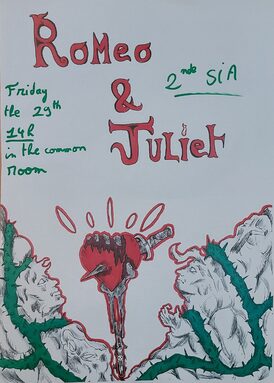 Romeo
&
Juliet
2nde SIA
Friday
the 29th
14h
in the common
room